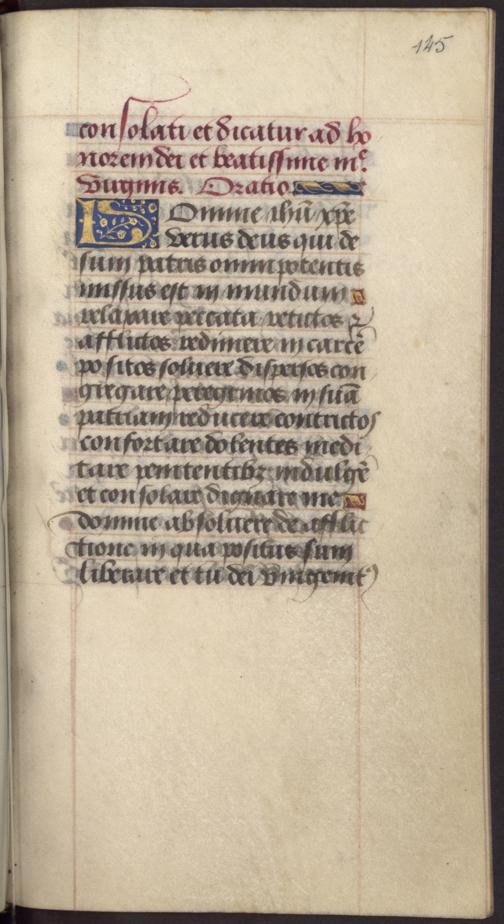 145
consolati et dicatur ad ho
norem dei et beatissime mᵉ.
Virginis. Oratio.
Domine ihū xpē
verus deus qui de
sum patris omnipotentis
missus est in mundum
relaxare peccata vetictos
afflictos redimere in carcē
positos soluere dispersos con
gregare peregrinos in suā
patriam reducere contritos
confortare dolentes medi
tare penitentibꝫ indulgē
et consolare dignare me
domine absoluere de afflic
tione in qua positus sum
liberare et tu dei vnigenitꝰ